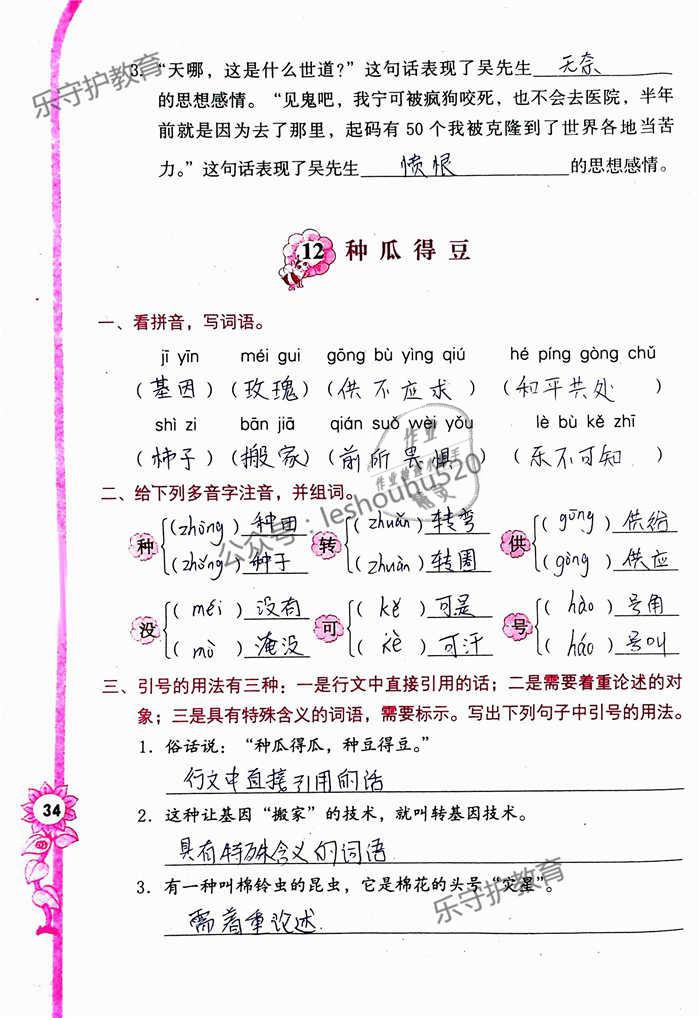 3. “天哪，这是什么世道？”这句话表现了吴先生 无奈
的思想感情。“见鬼吧，我宁可被疯狗咬死，也不会去医院，半年
前就是因为去了那里，起码有 50 个我被克隆到了世界各地当苦
力。”这句话表现了吴先生 愤恨 的思想感情。
12 种瓜得豆
一、看拼音，写词语。
jī yīn méi gui gōng bù yìng qiú hé píng gòng chǔ
（基因）（玫瑰）（供不应求）（和平共处）
shì zi bān jiā qián suǒ wèi yǒu lè bù kě zhī
（柿子）（搬家）（前所畏惧）（乐不可知）
二、给下列多音字注音，并组词。
（zhòng）种田 （zhuǎn）转弯 （gōng）供给
种 转 供
（zhǒng）种子 （zhuàn）转圈 （gòng）供应
（méi）没有 （kě）可是 （hào）号角
没 可 号
（mò）淹没 （kè）可汗 （háo）号叫
三、引号的用法有三种：一是行文中直接引用的话；二是需要着重论述的对
象；三是具有特殊含义的词语，需要标示。写出下列句子中引号的用法。
1. 俗话说：“种瓜得瓜，种豆得豆。”
行文中直接引用的话
2. 这种让基因“搬家”的技术，就叫转基因技术。
具有特殊含义的词语
3. 有一种叫棉铃虫的昆虫，它是棉花的头号“灾星”。
需着重论述.
34
乐守护教育
公众号：leshouhu520
乐守护教育